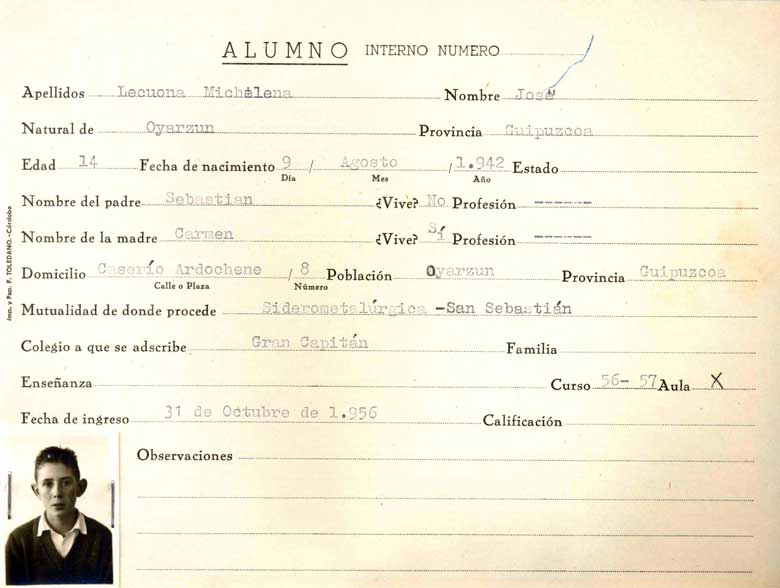 ALUMNO INTERNO NUMERO
Apellidos Lecuona Michelena Nombre José
Natural de Oyarzun Provincia Guipuzcoa
Edad 14 Fecha de nacimiento 9 / Agosto / 1.942 Estado
Día Mes Año
Nombre del padre Sebastian ¿Vive? No Profesión ------
Nombre de la madre Carmen ¿Vive? Sí Profesión ------
Domicilio Caserío Ardochene / 8 Población Oyarzun Provincia Guipuzcoa
Calle o Plaza Número
Mutualidad de donde procede Siderometalúrgica -San Sebastián
Colegio a que se adscribe Gran Capitán Familia
Enseñanza Curso 56- 57 Aula X
Fecha de ingreso 31 de Octubre de 1.956 Calificación
Observaciones
Imp. y Pap. F. TOLEDANO.-Córdoba